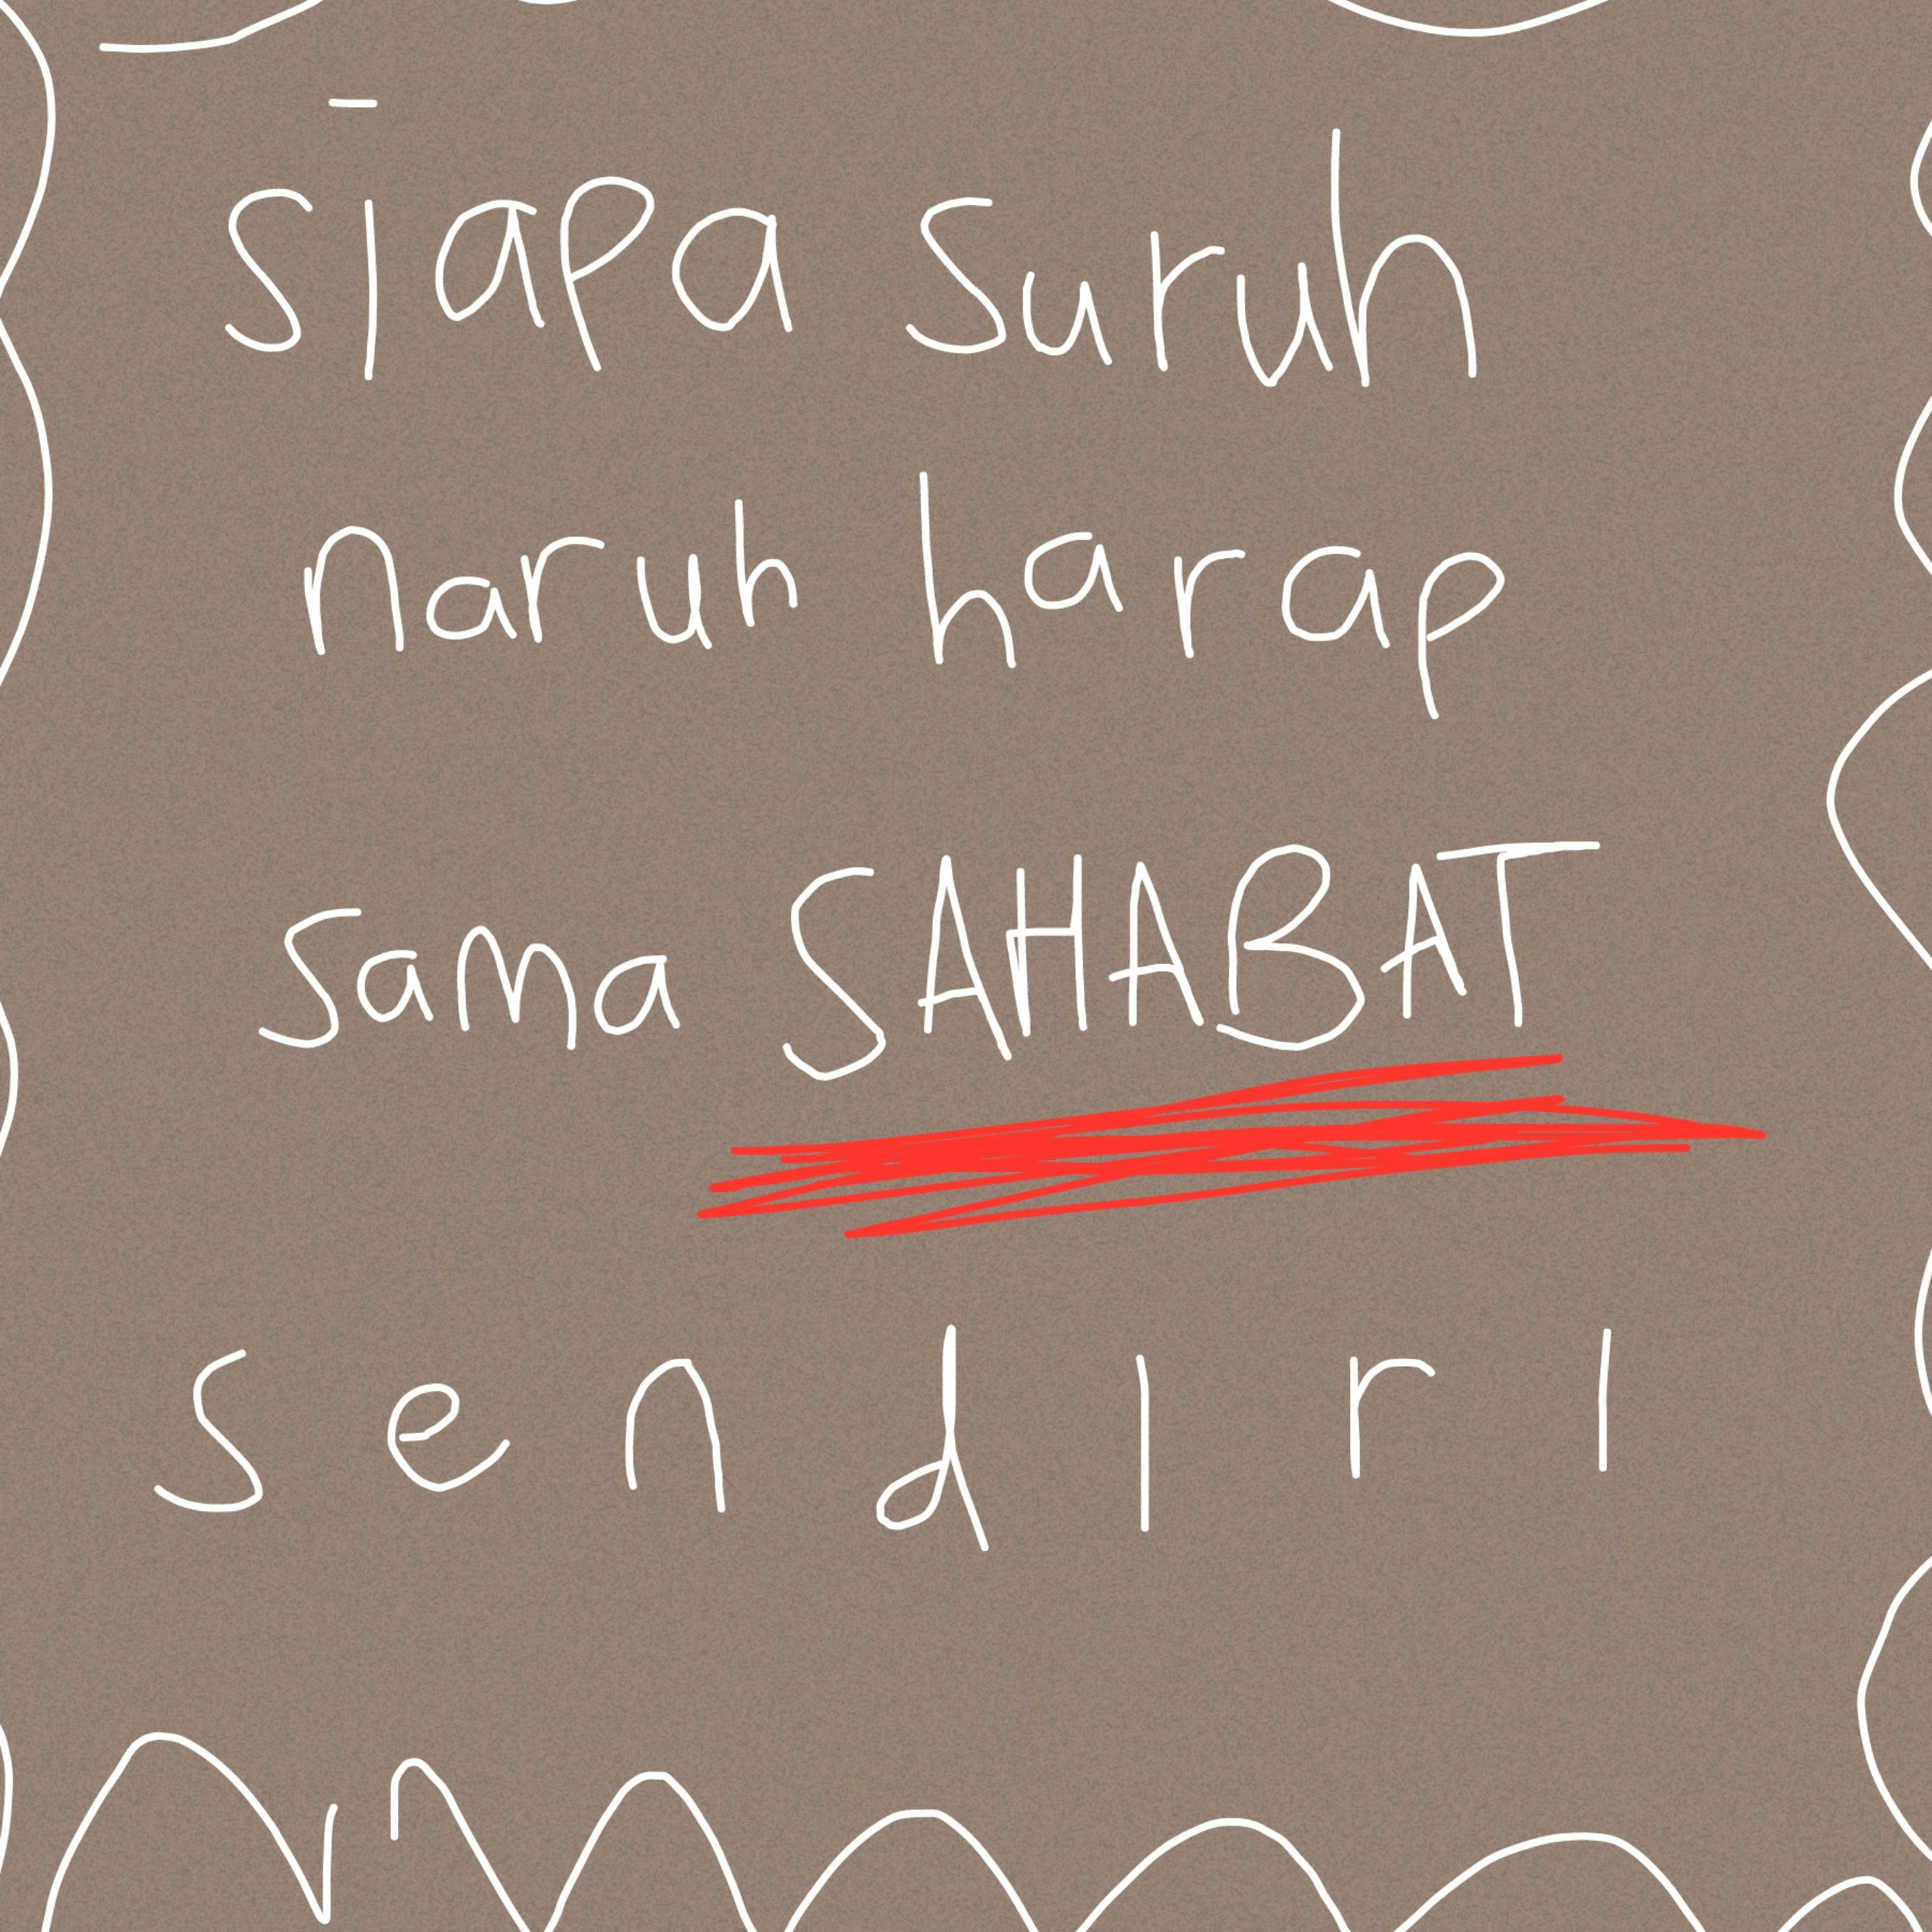 siapa suruh
naruh harap
sama SAHABAT
sendiri